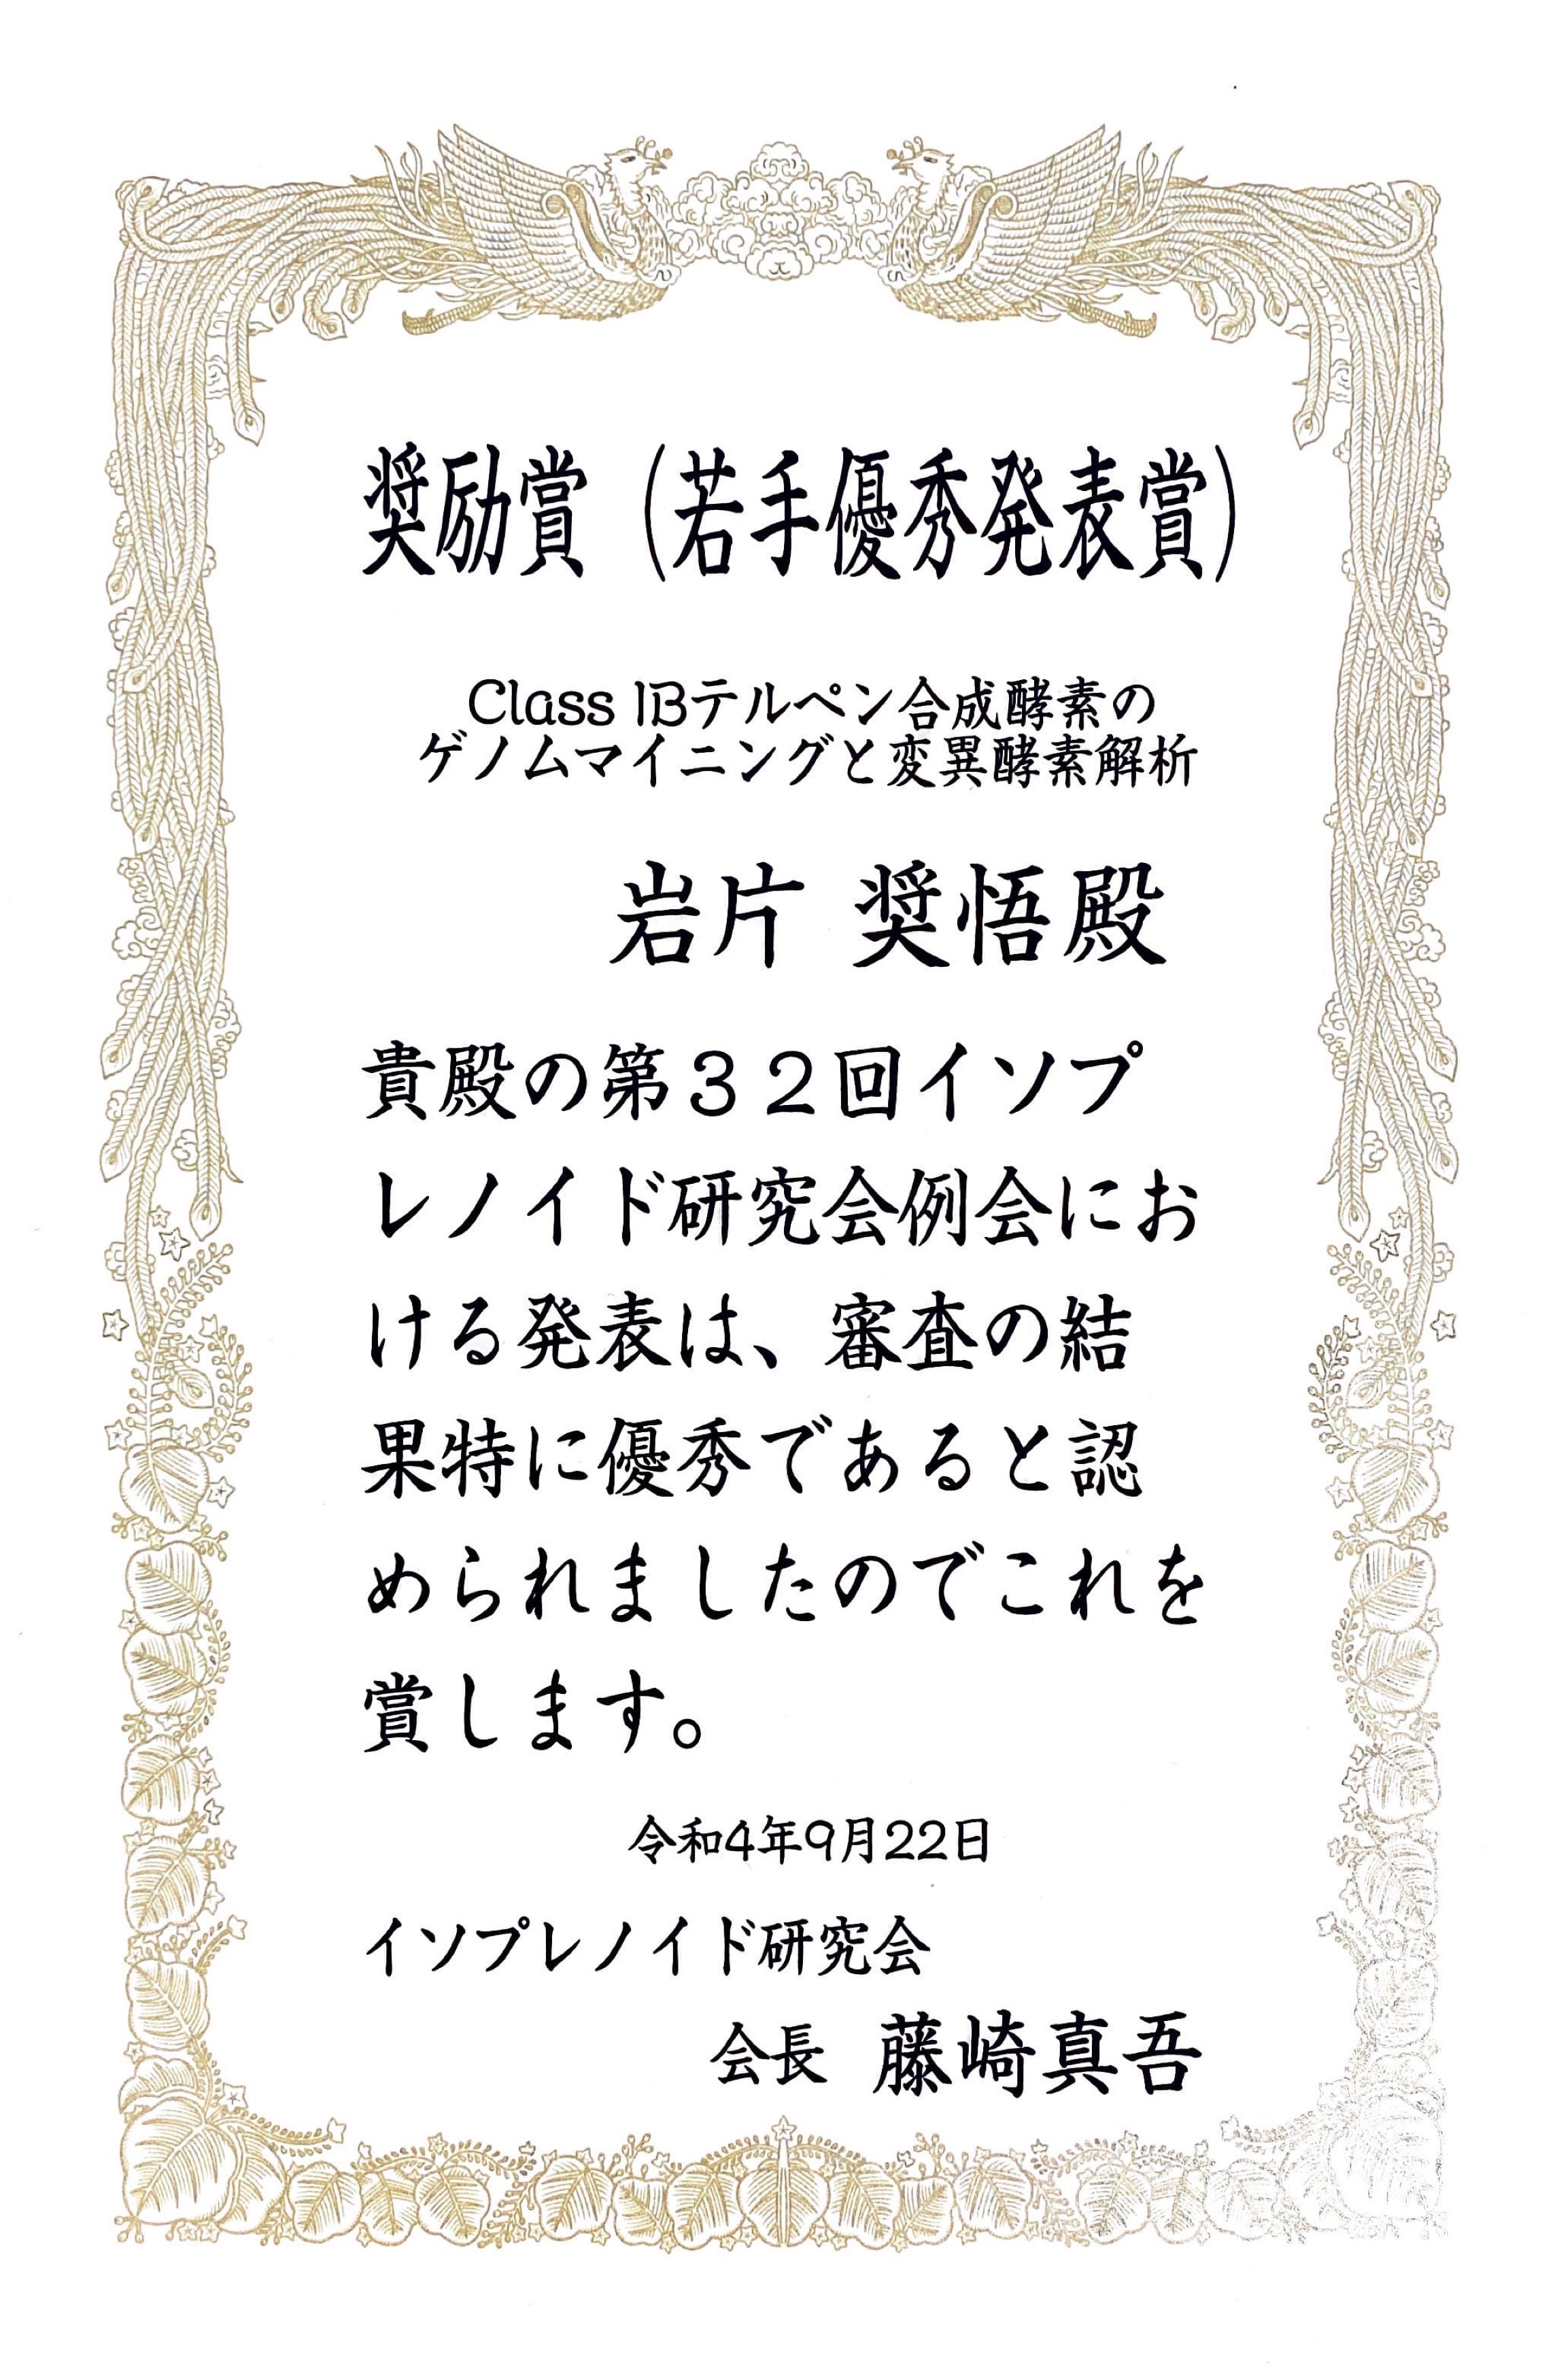 奨励賞（若手優秀発表賞）
Class IBテルペン合成酵素の
ゲノムマイニングと変異酵素解析
岩片 奨悟殿
貴殿の第３２回イソプ
レノイド研究会例会にお
ける発表は、審査の結
果特に優秀であると認
められましたのでこれを
賞します。
令和4年9月22日
イソプレノイド研究会
会長 藤崎真吾